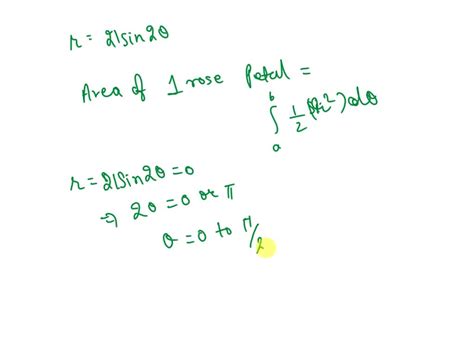 r = 21sin2θ
Area of 1 rose Petal =
∫ₐᵇ 1/2 (r²) dθ
r = 21Sin2θ = 0
⇒ 2θ = 0 or π
θ = 0 to π/2